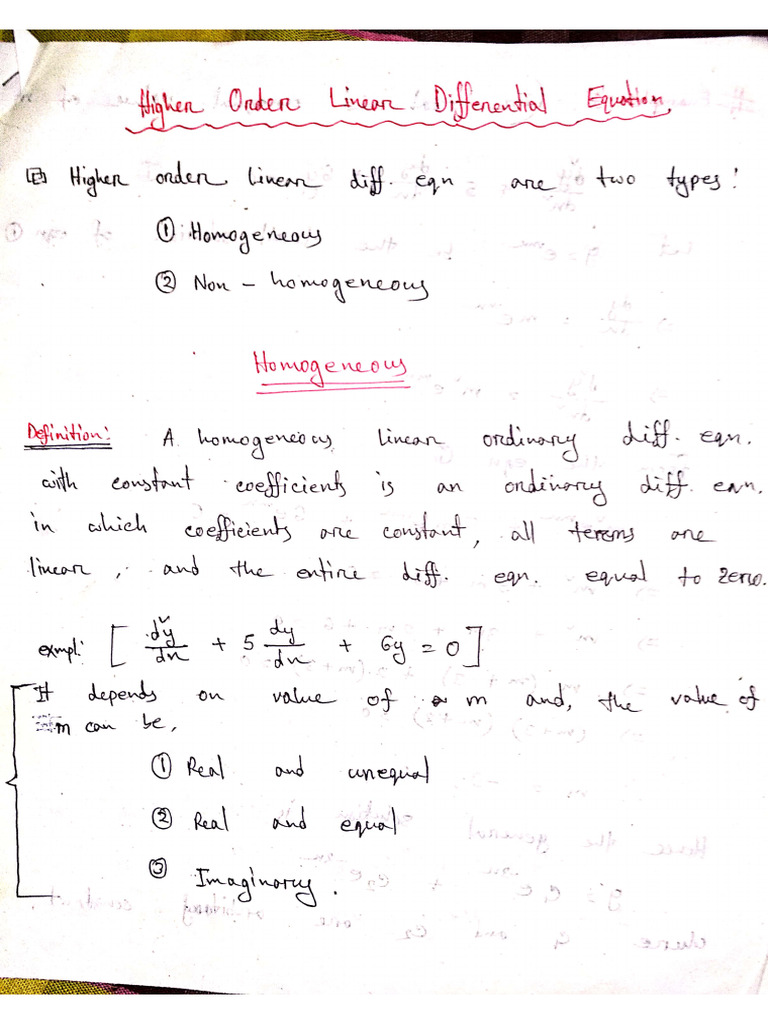 Higher Order Linear Differential Equation
Higher order linear diff. eqn are two types:
① Homogeneous
② Non - homogeneous
Homogeneous
Definition: A homogeneous linear ordinary diff. eqn.
with constant coefficients is an ordinary diff. eqn.
in which coefficients are constant, all terms are
linear, and the entire diff. eqn. equal to zero.
exmpl: [ d²y/dx + 5 dy/dx + 6y = 0 ]
It depends on value of m and, the value of
m can be,
① Real and unequal
② Real and equal
③ Imaginary.